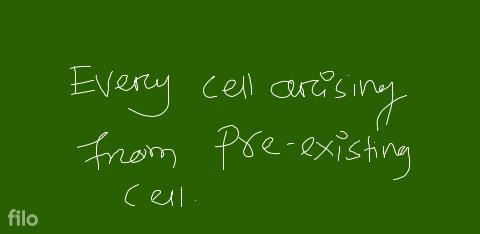 Every cell arising
from Pre-existing
cell.
filo